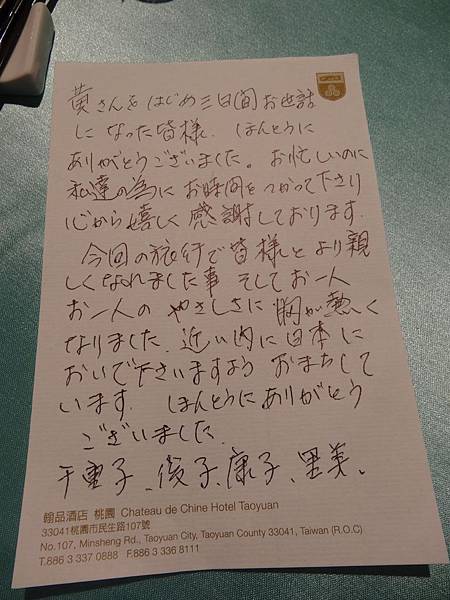 黄さんをはじめ三日間お世話
になった皆様．ほんとうに
ありがとうございました。お忙しいのに
私達の為にお時間をつかって下さり
心から嬉しく感謝しております．
今回の旅行で皆様とより親
しくなれました事 そしてお一人
お一人のやさしさに胸が熱く
なりました．近い内に日本に
おいで下さいますよう おまちして
います．ほんとうにありがとう
ございました．
千重子、俊子、康子、里美。
翰品酒店 桃園 Chateau de Chine Hotel Taoyuan
33041桃園市民生路107號
No.107, Minsheng Rd., Taoyuan City, Taoyuan County 33041, Taiwan (R.O.C)
T.886 3 337 0888 F.886 3 336 8111